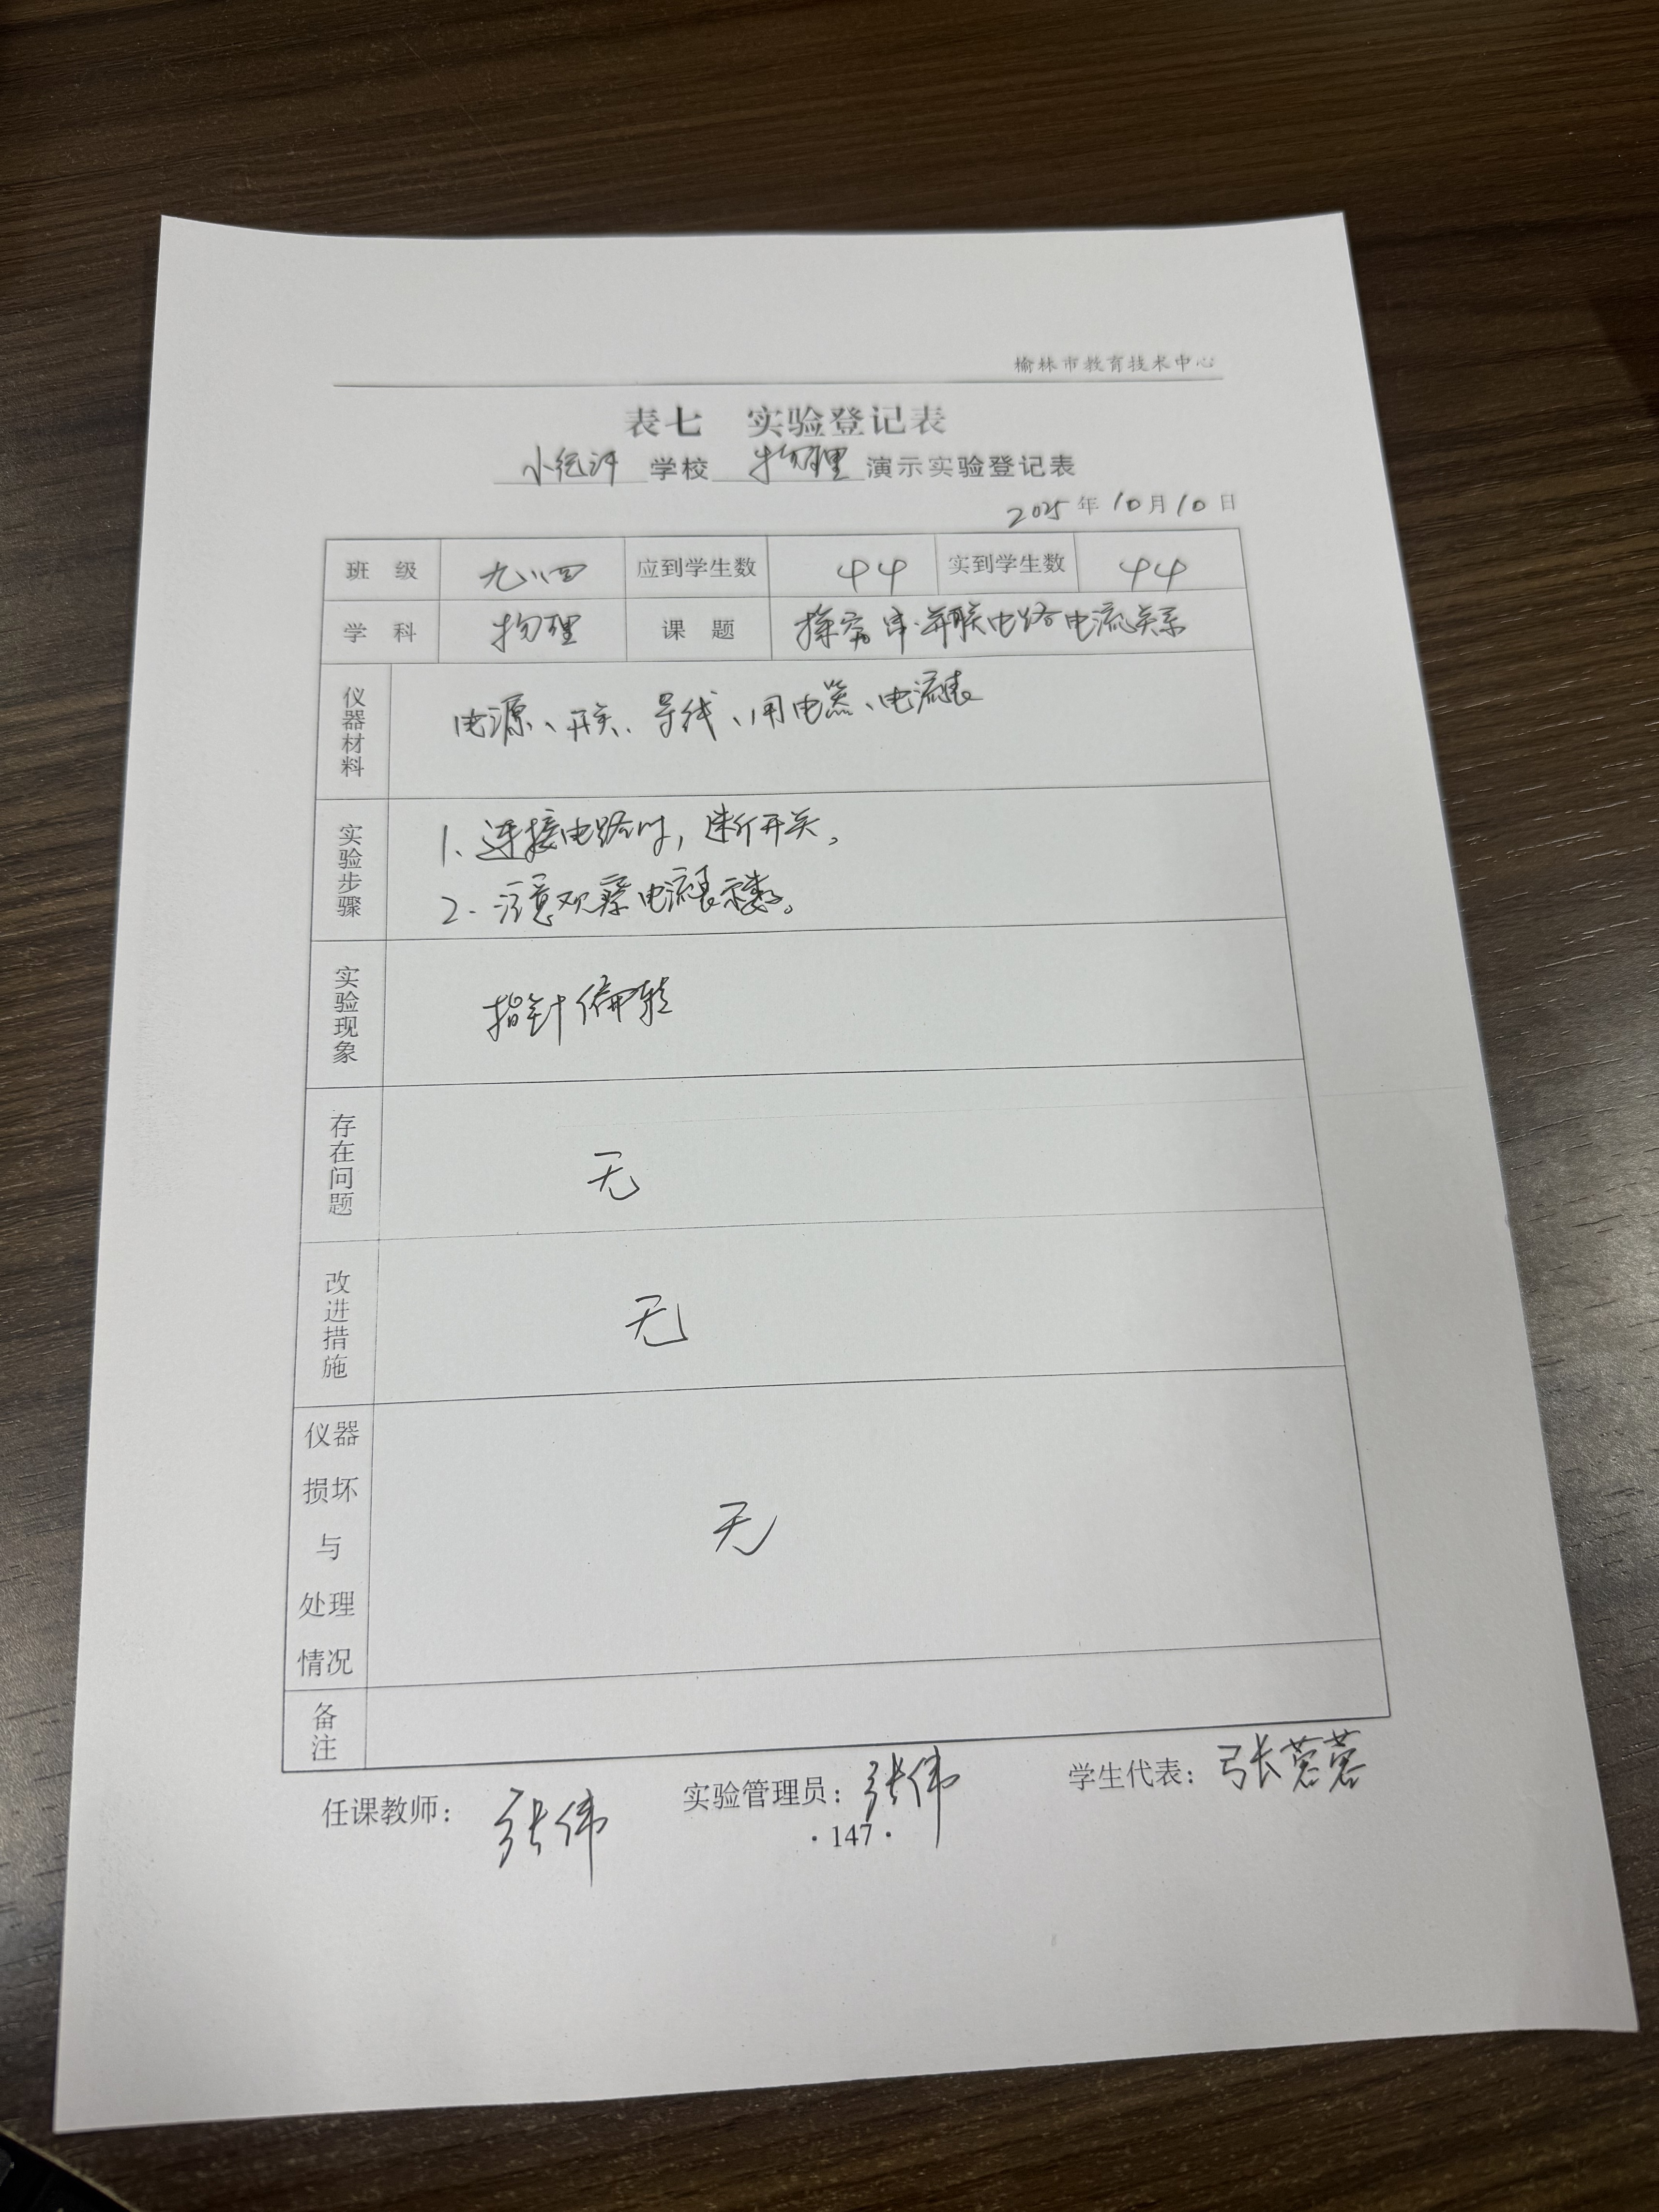 榆林市教育技术中心
表七 实验登记表
小纪汗 学校 物理 演示实验登记表
2025 年 10 月 10 日
班 级 九(四) 应到学生数 44 实到学生数 44
学 科 物理 课 题 探究串.并联电路电流关系
仪器材料 电源、开关、导线、用电器、电流表
实验步骤 1、连接电路时，断开关。
2. 注意观察电流表示数。
实验现象 指针偏转
存在问题 无
改进措施 无
仪器损坏与处理情况 无
备注
任课教师： 张伟 实验管理员：张伟 学生代表：张蓉蓉
·147·